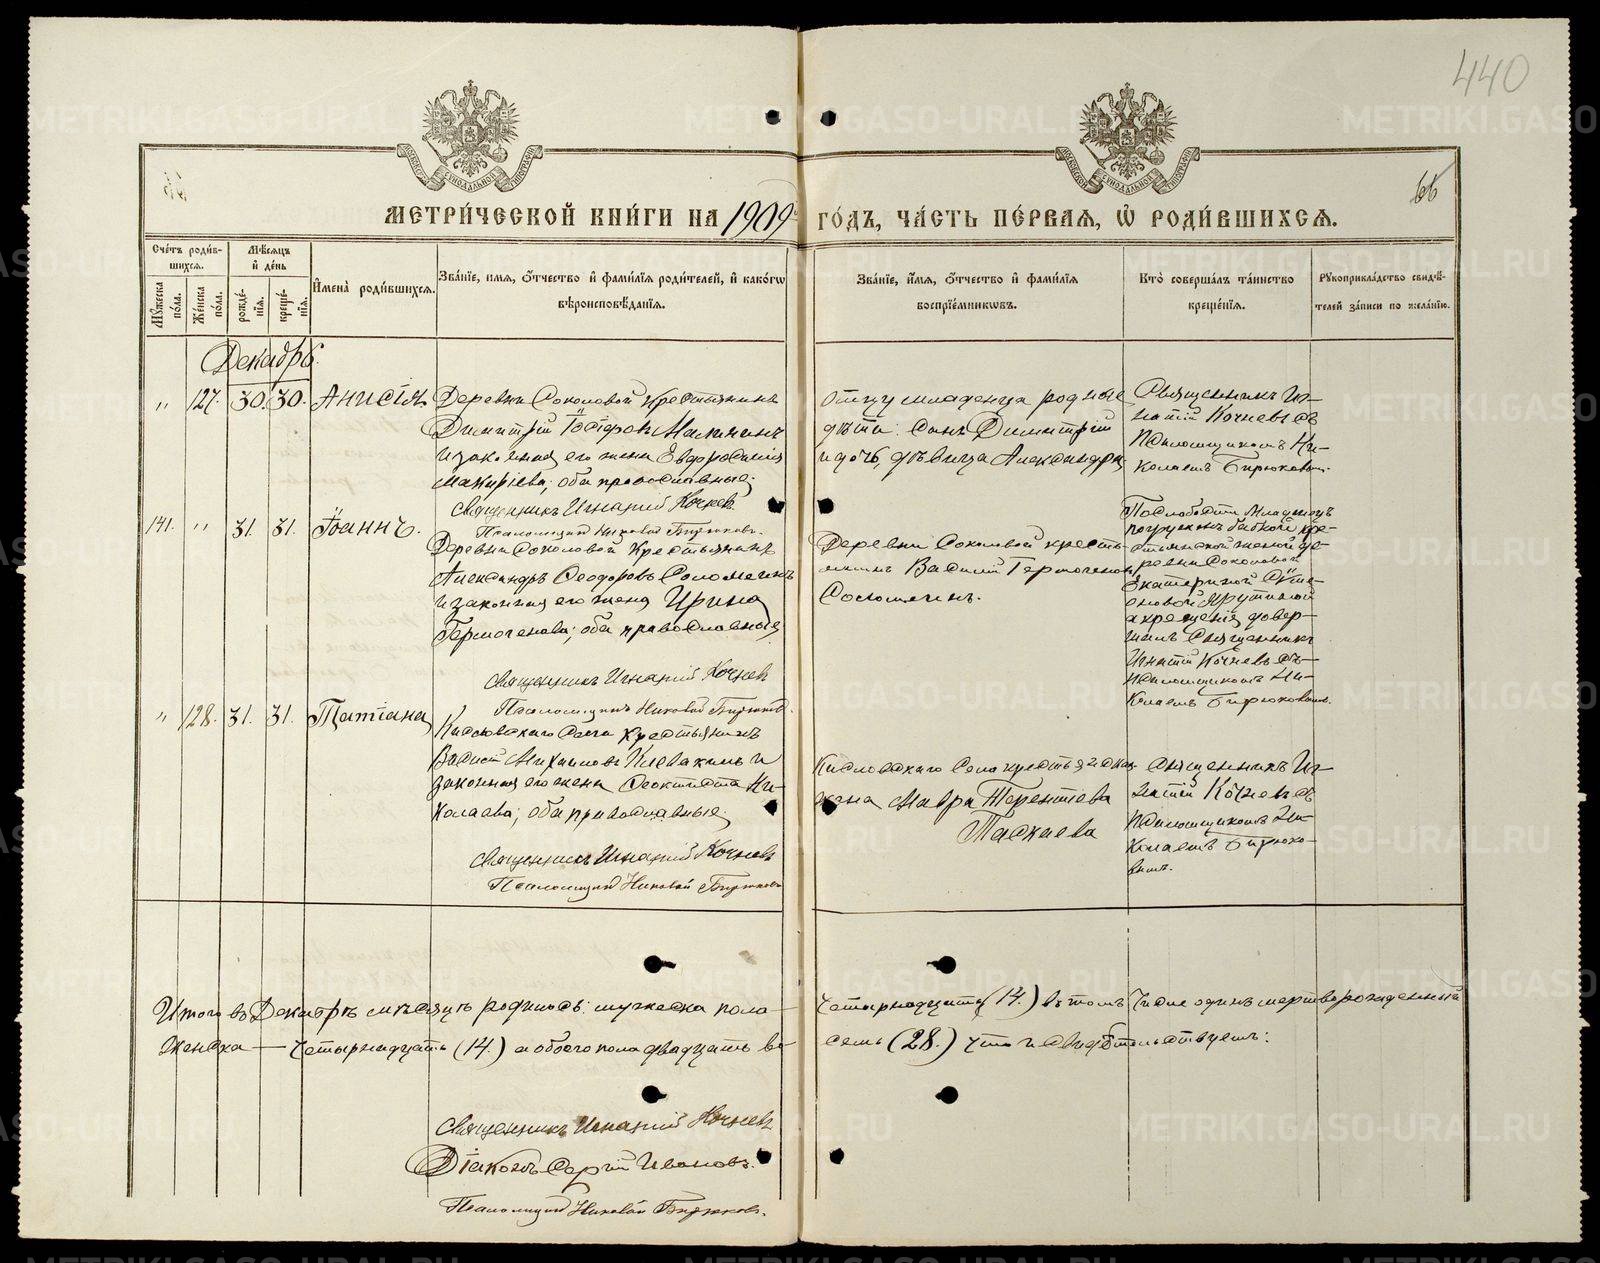 440
66
МЕТРИ́ЧЕСКОЙ КНИ́ГИ НА 1909 ГО́ДЪ, ЧА́СТЬ ПЕ́РВАЯ, Ѡ҆ РОДИ́ВШИХСЯ.
Сче́тъ роди́в-
шихся.
Мꙋ́жеска
по́ла.
Же́нска
по́ла.
Мѣ́сяцъ
и҆ де́нь
рожде́-
нїя.
креще́-
нїя.
И҆мена̀ роди́вшихся.
Зва́нїе, и҆мя, ѻ҆́тчество и҆ фами́лїя роди́телей, и҆ како́гѡ
вѣроисповѣ́данїя.
Зва́нїе, и҆́мя, ѻ҆́тчество и҆ фами́лїя
воспрїе́мниковъ.
Кто̀ соверша́лъ та́инство
креще́нїя.
Рꙋкоприкла́дство свидѣ́-
телей за́писи по жела́нїю.
Декабрь.
" 127. 30. 30. Анисія
Деревни Соколовой крестьянинъ
Димитрій Іосифовъ Малининъ
и законная его жена Евфросинія
оба православные.
Священникъ Игнатій Кочневъ
Псаломщикъ Николай Бирюковъ.
Отцу младенца родные
дѣти: Сынъ Димитрій
и дочь, дѣвица Александра
Священникъ Иг-
натій Кочневъ съ
Псаломщикомъ Ни-
колаемъ Бирюковымъ.
141. " 31. 31. Іоаннъ.
Деревни Соколовой крестьянинъ
Александръ Ѳеодоровъ Соломеинъ
и законная его жена Ирина
Гермогенова; оба православные
Священникъ Игнатій Кочнев
Псаломщикъ Николай Бирюков.
Деревни Соколовой кресть-
янинъ Василій Гермогеновъ
Соломеинъ.
По слабости младенецъ
погруженъ бабкой кре-
стьянской женой де-
ревни Соколовой
Екатериной Сѵме-
оновой Крутиковой
а крещеніе довер-
шилъ Священникъ
Игнатій Кочневъ съ
Псаломщикомъ Ни-
колаемъ Бирюковымъ.
" 128. 31. 31. Татіана
Кисловскаго Села крестьянинъ
Василій Михаиловъ Клевакинъ и
законная его жена Ѳеоктиста Ни-
колаева; оба православные
Священникъ Игнатій Кочневъ
Псаломщикъ Николай Бирюковъ
Кисловскаго Села крестьянская
жена Мавра Терентьева
Паскаева
Священникъ Иг-
натій Кочневъ съ
Псаломщикомъ Ни-
колаемъ Бирюко-
вымъ.
Итого въ Декабрѣ мѣсяцѣ родилось: мужеска пола — четырнадцать (14.) въ томъ числе одинъ мертворожденный
Женска — четырнадцать (14.) а обоего пола двадцать во-семь (28.) что и свидѣтельствуемъ:
Священникъ Игнатій Кочневъ
Діаконъ Сергій Ивановъ.
Псаломщикъ Николай Бирюковъ.
METRIKI.GASO-URAL.RU